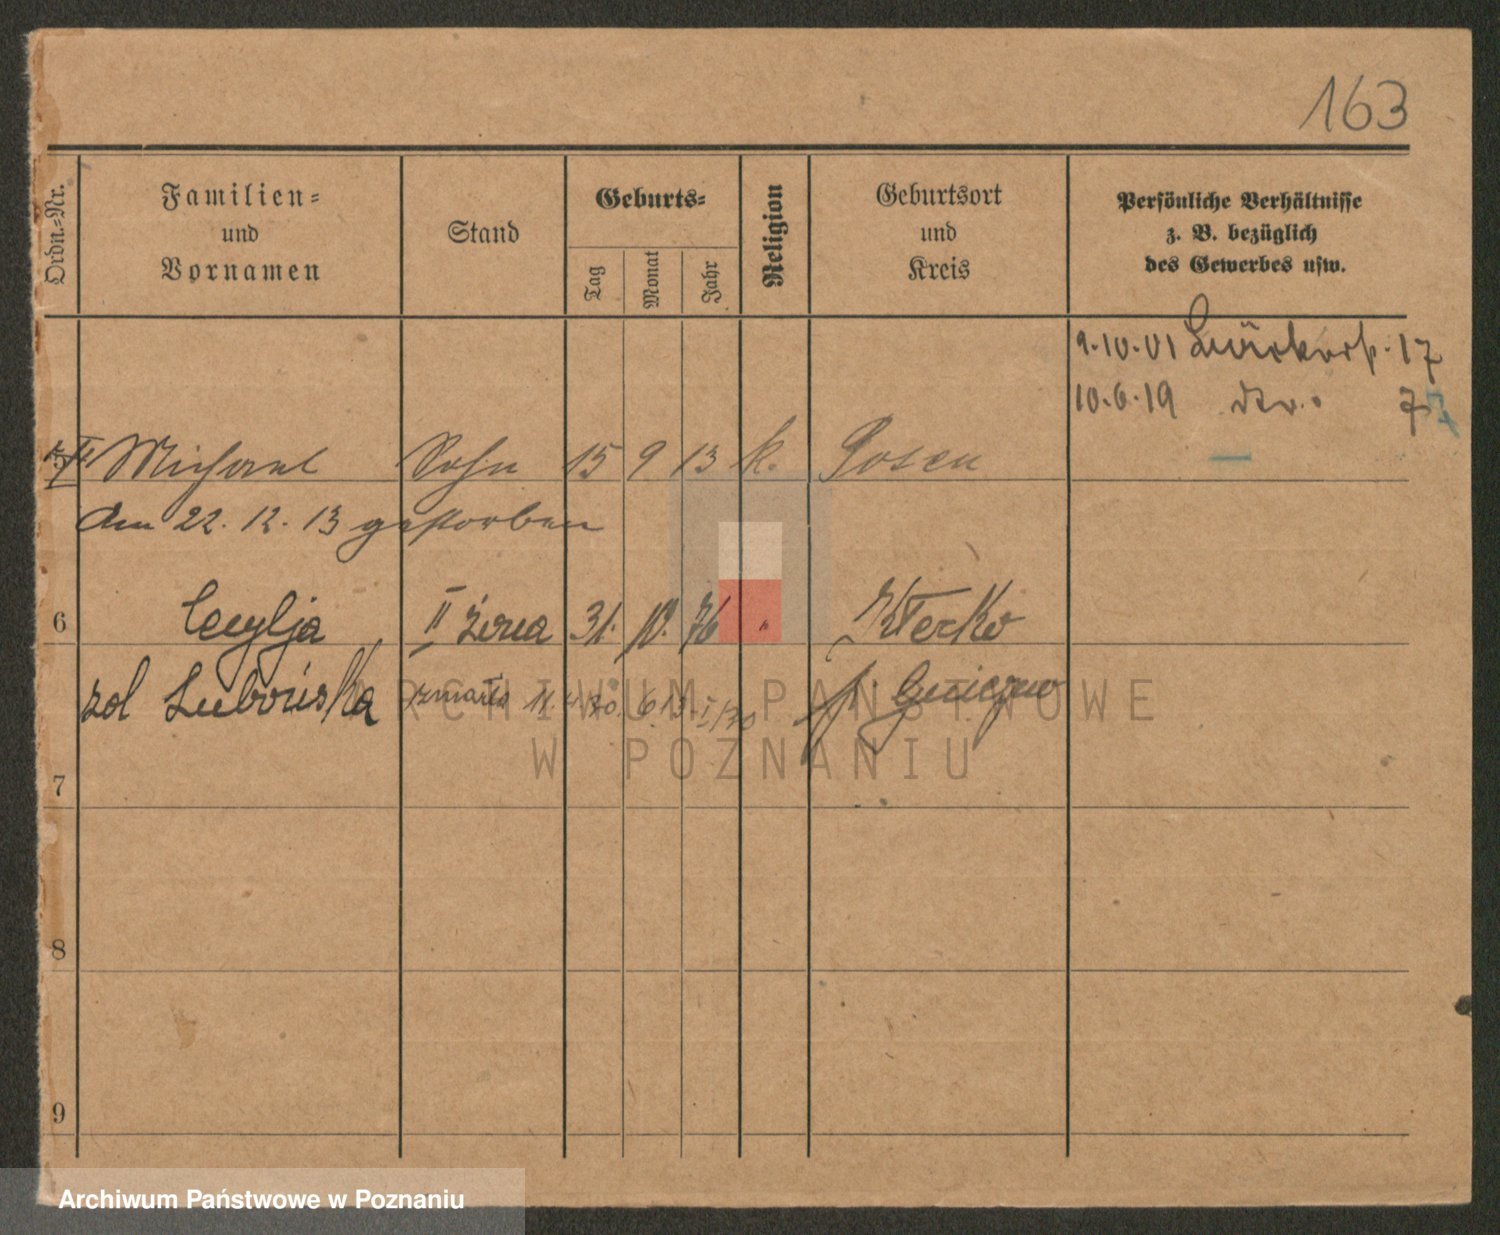 163
Ordn.=Nr.
Familien=
und
Vornamen
Stand
Geburts=
Tag
Monat
Jahr
Religion
Geburtsort
und
Kreis
Persönliche Verhältnisse
z. B. bezüglich
des Gewerbes usw.
9.10.01 17
10.6.19 7
Michael Sohn 15 9 13 k. Posen
Am 22. 12. 13 gestorben
6 Cecylja II żona 31. 10. 76 " Kłecko
zmarła 11. p. Gniezno
ARCHIWUM PAŃSTWOWE
W POZNANIU
7
8
9
Archiwum Państwowe w Poznaniu